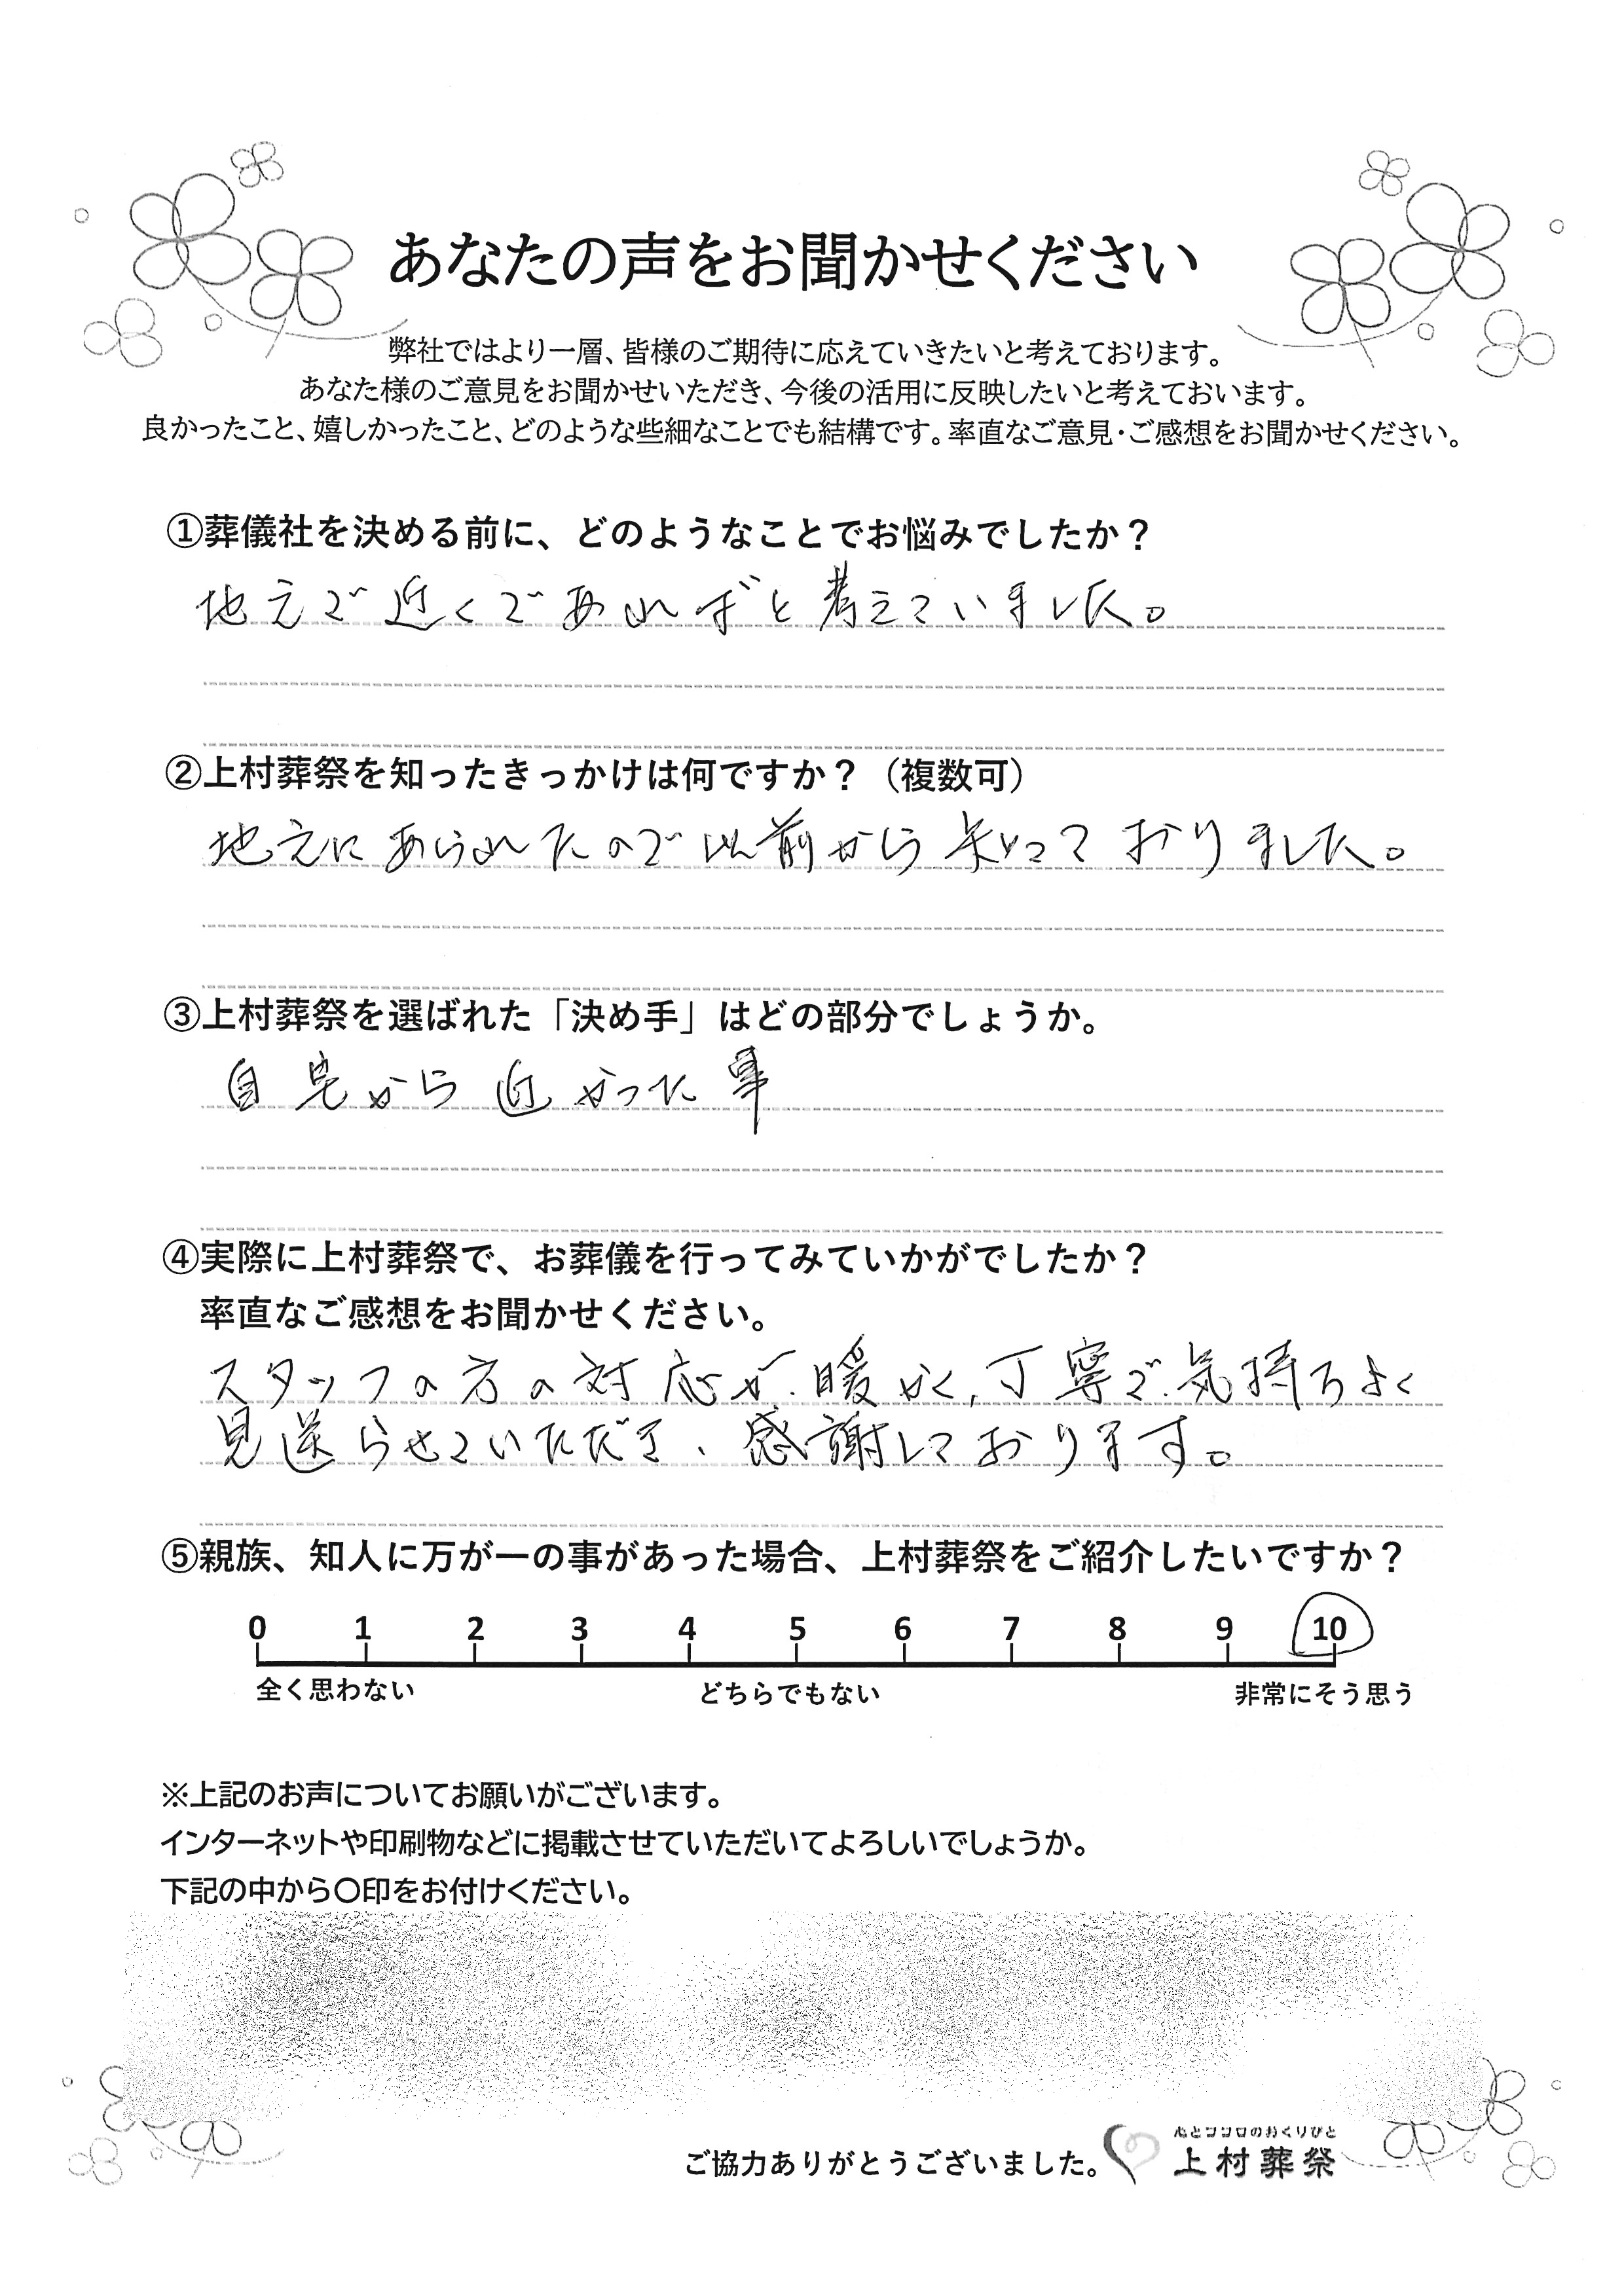 あなたの声をお聞かせください
弊社ではより一層、皆様のご期待に応えていきたいと考えております。
あなた様のご意見をお聞かせいただき、今後の活用に反映したいと考えておいます。
良かったこと、嬉しかったこと、どのような些細なことでも結構です。率直なご意見・ご感想をお聞かせください。
①葬儀社を決める前に、どのようなことでお悩みでしたか？
地元で近くであればと考えていました。
②上村葬祭を知ったきっかけは何ですか？（複数可）
地元にあられたので以前から知っておりました。
③上村葬祭を選ばれた「決め手」はどの部分でしょうか。
自宅から近かった事
④実際に上村葬祭で、お葬儀を行ってみていかがでしたか？
率直なご感想をお聞かせください。
スタッフの方の対応が、暖かく、丁寧で、気持ちよく
見送らせていただき、感謝しております。
⑤親族、知人に万が一の事があった場合、上村葬祭をご紹介したいですか？
0 1 2 3 4 5 6 7 8 9 10
全く思わない どちらでもない 非常にそう思う
※上記のお声についてお願いがございます。
インターネットや印刷物などに掲載させていただいてよろしいでしょうか。
下記の中から〇印をお付けください。
ご協力ありがとうございました。
心とココロのおくりびと
上村葬祭